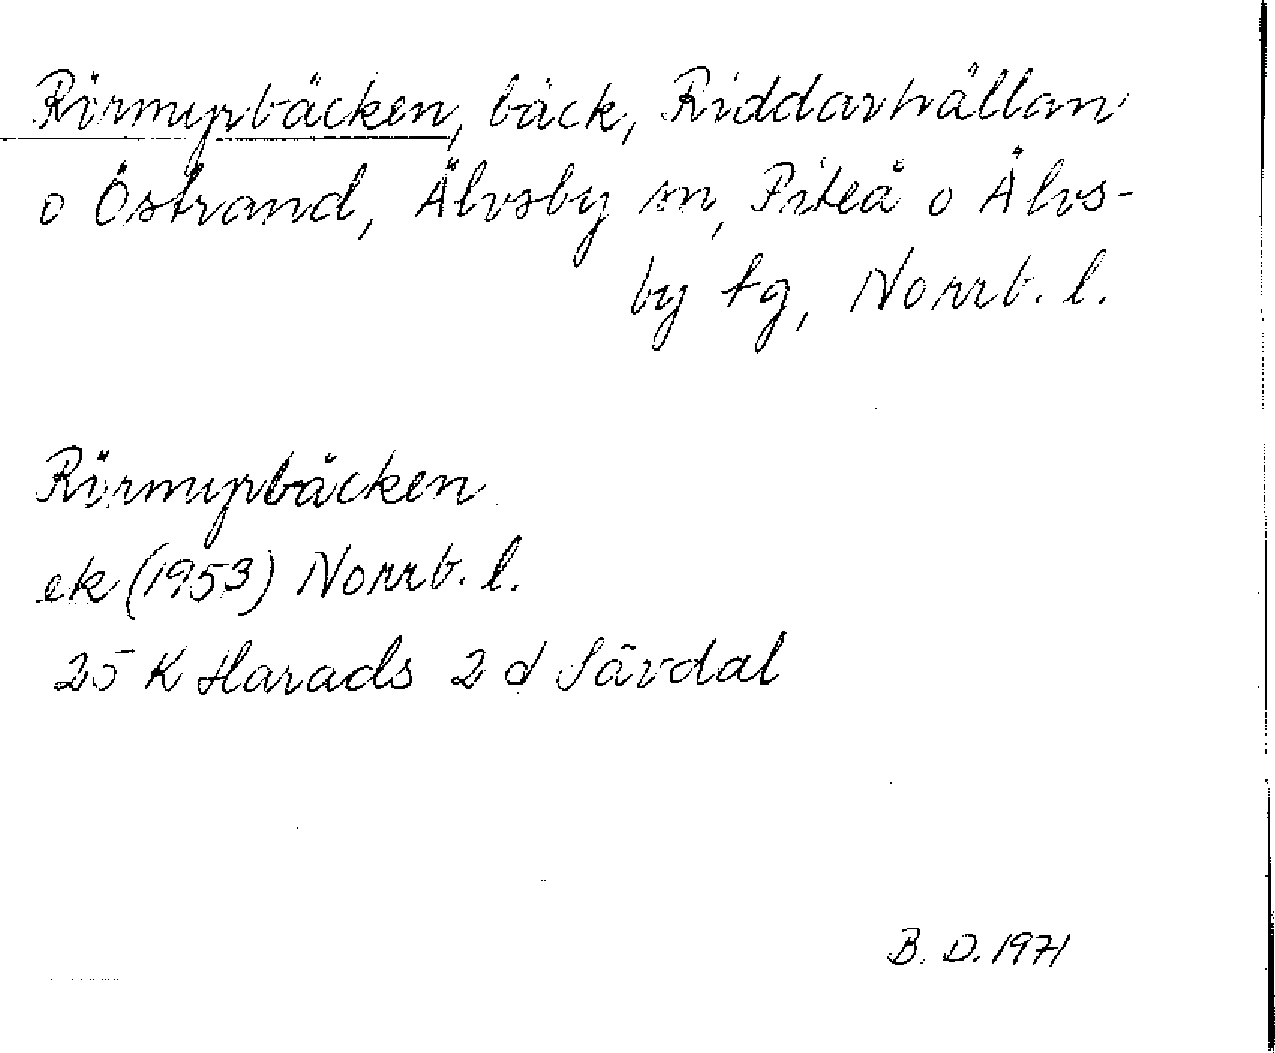 Rörmyrbäcken, bäck, Riddarhällan
o Östrand, Älvsby sn, Piteå o Älvs-
by tg, Norrb. l.
Rörmyrbäcken
ek (1953) Norrb. l.
25 K Harads 2 d Sävdal
B. D. 1971